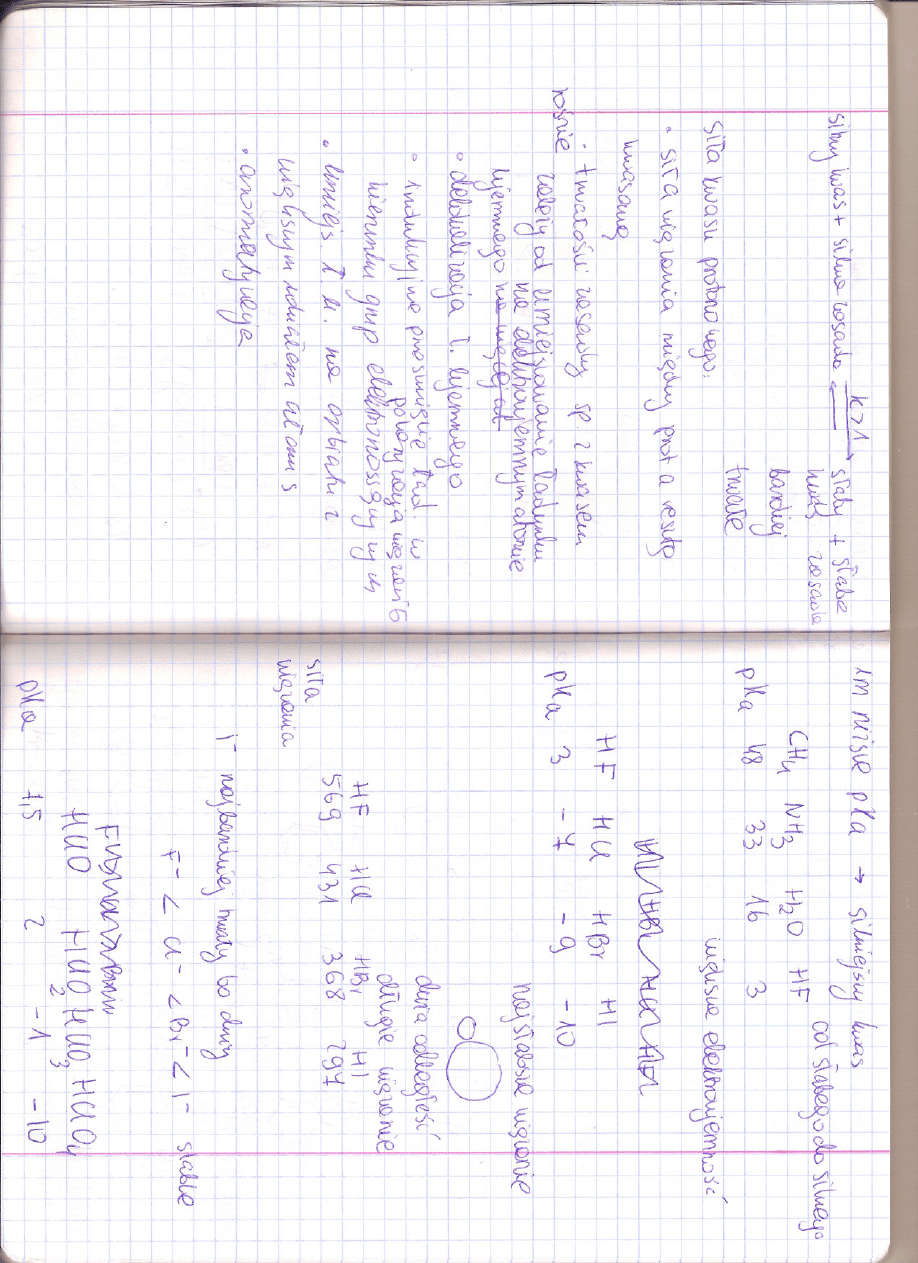 silny kwas + silna zasada K>1 słaby + słabe
kwas zasada
bardziej
trwałe
siła kwasu protonowego:
• siła wiązania między prot a resztą
kwasową
• trwałość zasady sp z kwasem
rośnie zależy od umiejscowienie ładunku
na elektroujemnym atomie
ujemnego
• delokalizacja ł. ujemnego
• indukcyjne przesunięcie ład. w
polaryzacja wiązania σ
kierunku grup elektronossących
• umiejs ł. u. na orbit. z
większym udziałem atomu s
• aromatyzacja
im niższe pKa → silniejszy kwas
CH4 NH3 H2O HF od słabego do silnego
pKa 48 33 16 3
większa elektroujemność
HF HCl HBr HI
pKa 3 -7 -9 -10
najsłabsze wiązanie
duża odległość
długie wiązanie
HF HCl HBr HI
siła 569 431 368 297
wiązania
I⁻ najbardziej trwały bo duży
F⁻ < Cl⁻ < Br⁻ < I⁻ stabilne
HClO HClO2 HClO3 HClO4
pKa 7,5 2 -1 -10